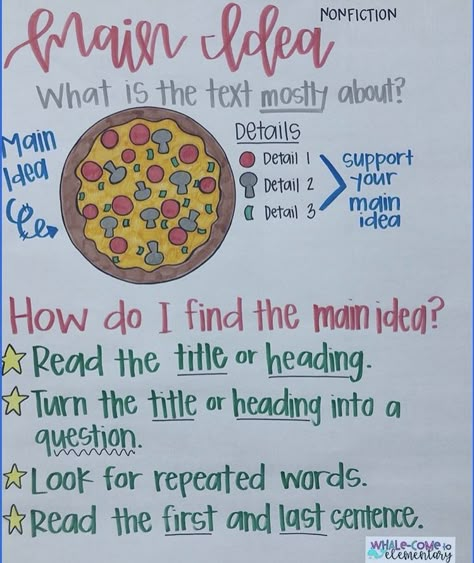 Main Idea
NONFICTION
What is the text mostly about?
Main
Idea
Details
Detail 1
Detail 2
Detail 3
support
your
main
idea
How do I find the main idea?
Read the title or heading.
Turn the title or heading into a
question.
Look for repeated words.
Read the first and last sentence.
WHALE-COME to
elementary